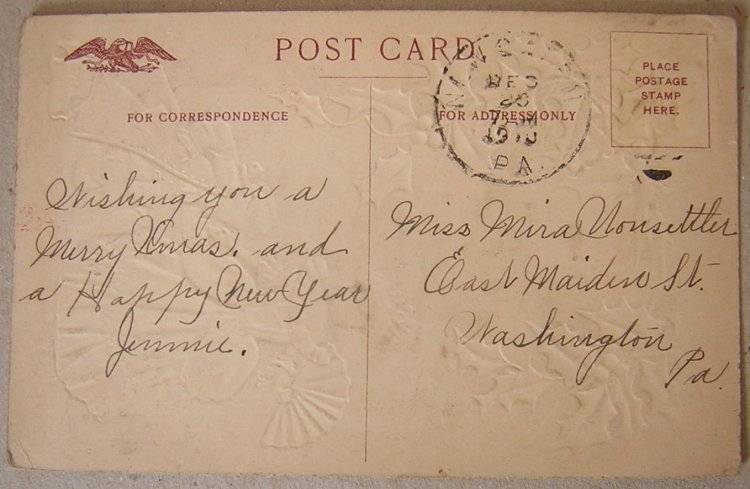 POST CARD
PLACE
POSTAGE
STAMP
HERE.
FOR CORRESPONDENCE
FOR ADDRESS ONLY
DEC
26
7 AM
PA.
Wishing you a
Merry Xmas. and
a Happy New Year
Jennie.
Miss Mira Nonsettler
East Maiden St.
Washington
Pa.